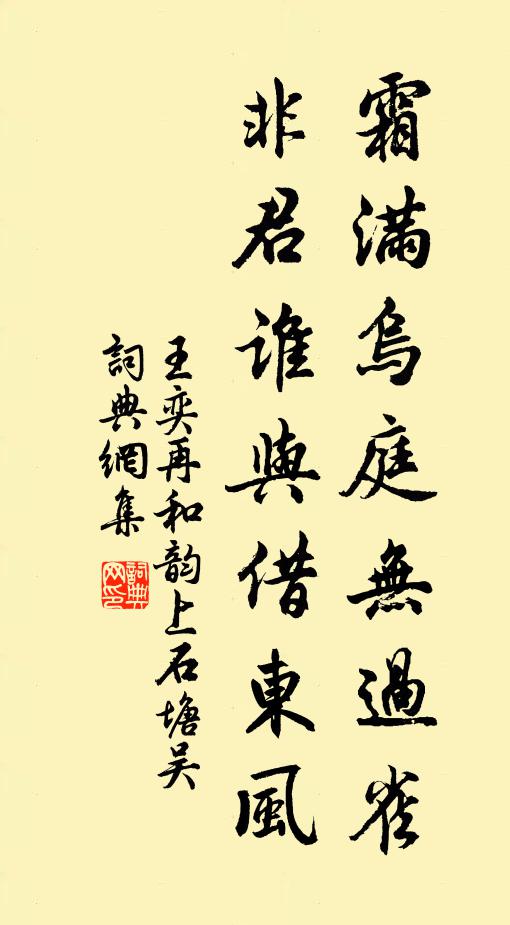 霜滿烏庭無過雀
非君誰與借東風
王奕再和韵上石塘吴
詞典網集
詞典网印